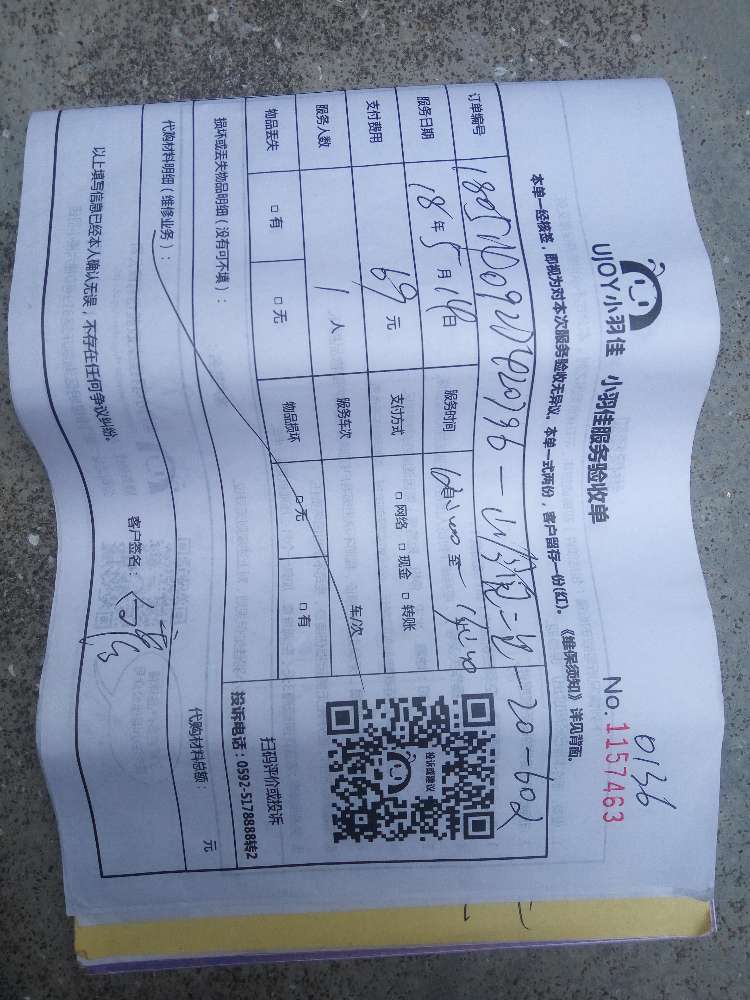 UJOY小羽佳 小羽佳服务验收单
0136
No. 1157463
本单一经核签，即视为对本次服务验收无异议。本单一式两份，客户留存一份(红)。《维保须知》详见背面。
订单编号
服务日期 18年5月14日 服务时间 至
支付费用 69元 支付方式 □网络 □现金 □转账
服务人数 1人 服务车次 车/次
物品丢失 □有 □无 物品损坏 □无 □有
损坏或丢失物品明细（没有可不填）：
投诉或建议
扫码评价或投诉
投诉电话：0592-5178888转2
代购材料明细（维修业务）：
代购材料总额： 元
以上填写信息已经本人确认无误，不存在任何争议纠纷。
客户签名：